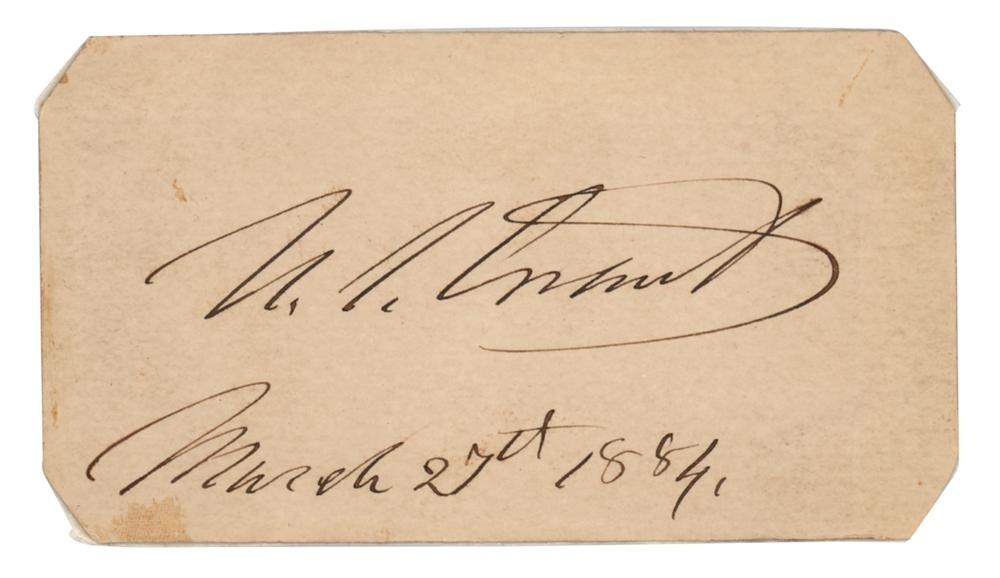 U. S. Grant
March 27th 1884.